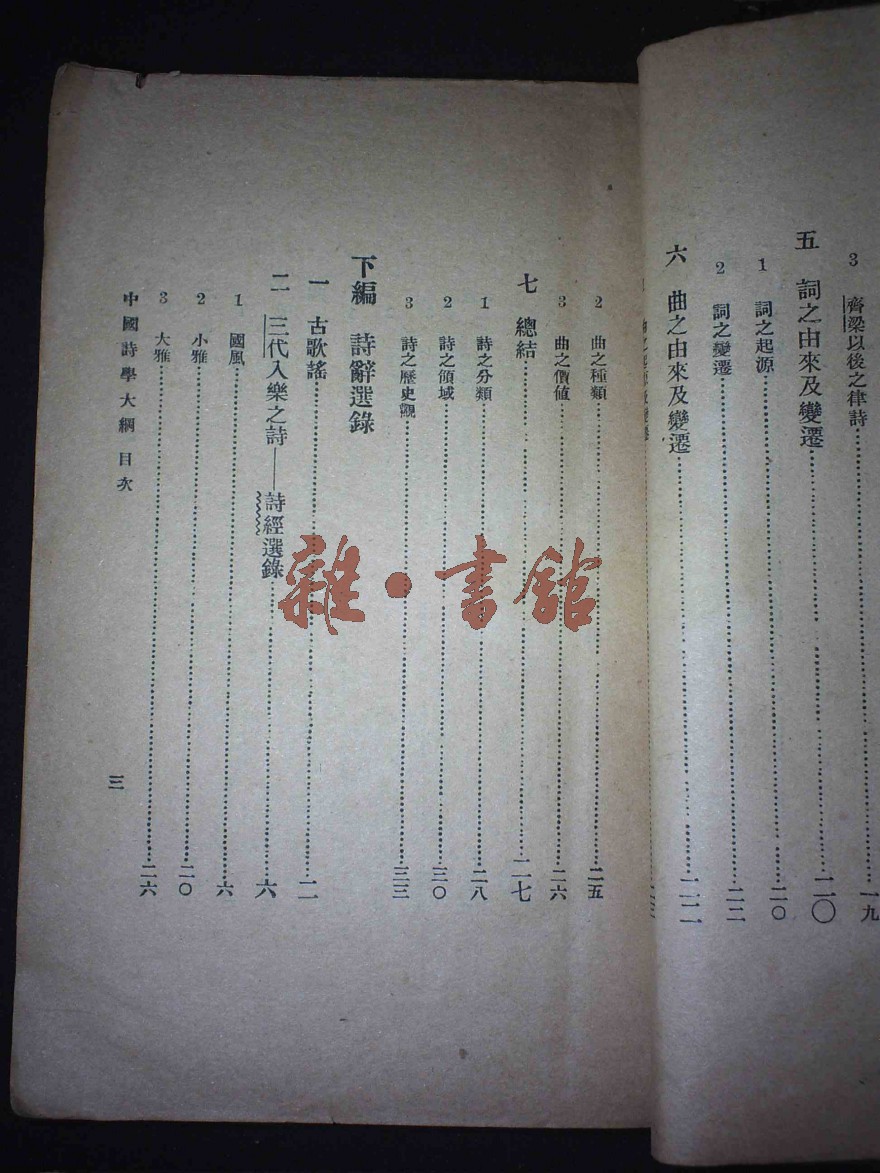 3 齊梁以後之律詩……一九
五 詞之由來及變遷……二〇
1 詞之起源……二〇
2 詞之變遷……二二
六 曲之由來及變遷……二三
2 曲之種類……二五
3 曲之價值……二六
七 總結……二七
1 詩之分類……二八
2 詩之領域……三〇
3 詩之歷史觀……三三
下編 詩辭選錄
一 古歌謠……一
二 三代入樂之詩——詩經選錄……六
1 國風……六
2 小雅……二〇
3 大雅……二六
中國詩學大綱 目次
三
雜·書館